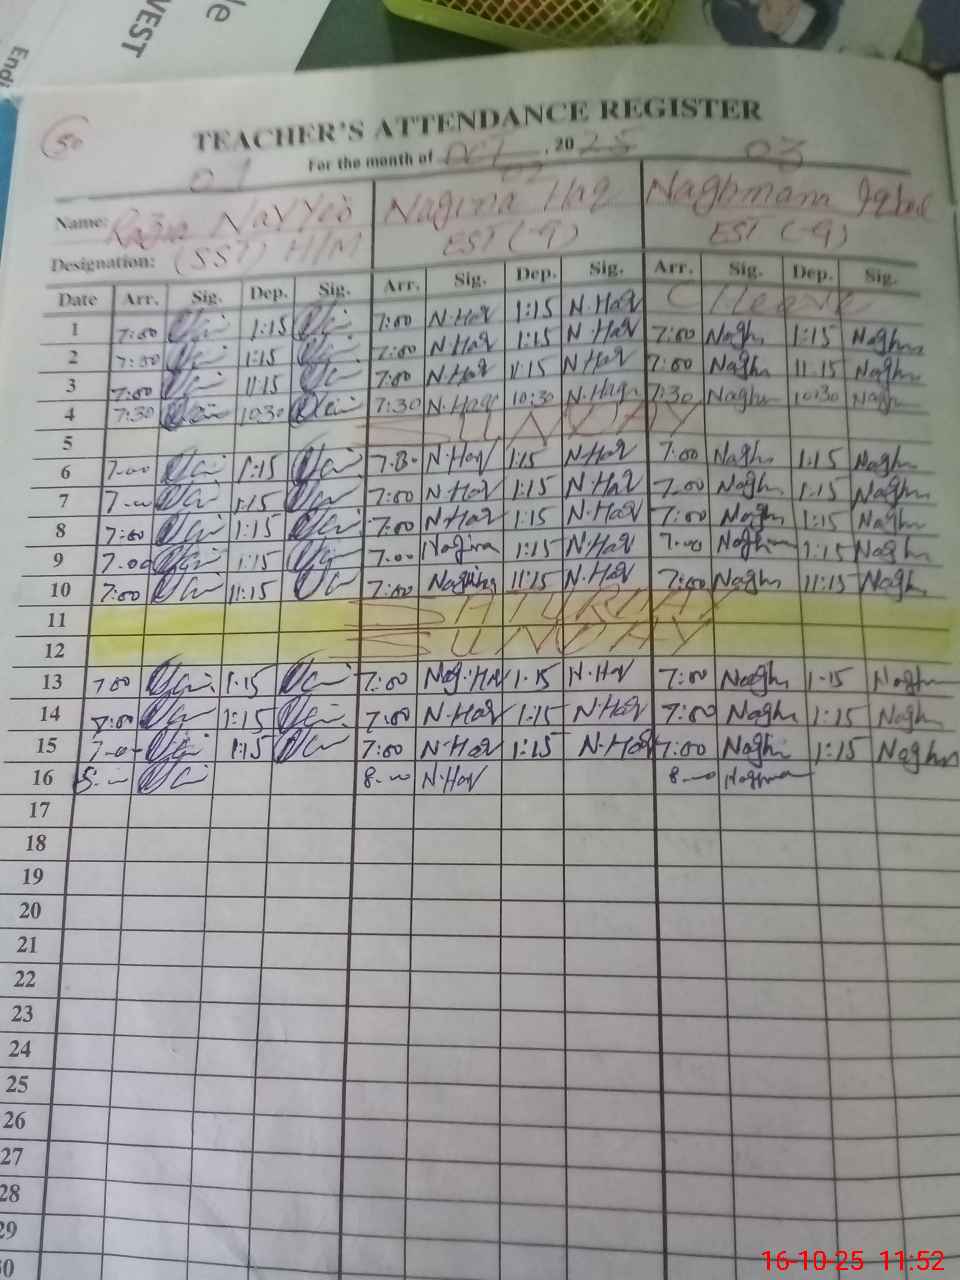 le
VEST
Endi
50
TEACHER'S ATTENDANCE REGISTER
For the month of Oct, 2025
01 02 03
Name: Razia Nagina Haq Naghmana Iqbal
Designation: (SST) H/M EST (-9) EST (-9)
Date Arr. Sig. Dep. Sig. Arr. Sig. Dep. Sig. Arr. Sig. Dep. Sig.
1 7:00 1:15 7:00 N.Haq 1:15 N.Haq C/leave
2 7:00 1:15 7:00 N.Haq 1:15 N.Haq 7:00 Naghm 1:15 Naghm
3 7:00 11:15 7:00 N.Haq 11:15 N.Haq 7:00 Naghm 11:15 Naghm
4 7:30 10:30 7:30 N.Haq 10:30 N.Haq 7:30 Naghm 10:30 Naghm
5 SUNDAY
6 7-00 1:15 N.Haq 1:15 N.Haq 7:00 Naghm 1:15 Naghm
7 7-00 1:15 7:00 N.Haq 1:15 N.Haq 7:00 Naghm 1:15 Naghm
8 7:00 1:15 7:00 N.Haq 1:15 N.Haq 7:00 Naghm 1:15 Naghm
9 7.00 1:15 7.00 Nagina 1:15 N.Haq 7.00 Naghm 1:15 Naghm
10 7:00 11:15 7:00 Nagina 11:15 N.Haq 7:00 Naghm 11:15 Naghm
11 SATURDAY
12 SUNDAY
13 7:00 1:15 7:00 Nag.Haq 1:15 N.Haq 7:00 Naghm 1:15 Naghm
14 7:00 1:15 7:00 N.Haq 1:15 N.Haq 7:00 Naghm 1:15 Naghm
15 7-0- 1:15 7:00 N.Haq 1:15 N.Haq 7:00 Naghm 1:15 Naghm
16 8:-- 8.-00 N.Haq 8.-00 Naghmana
17
18
19
20
21
22
23
24
25
26
27
28
29
30
16-10-25 11:52